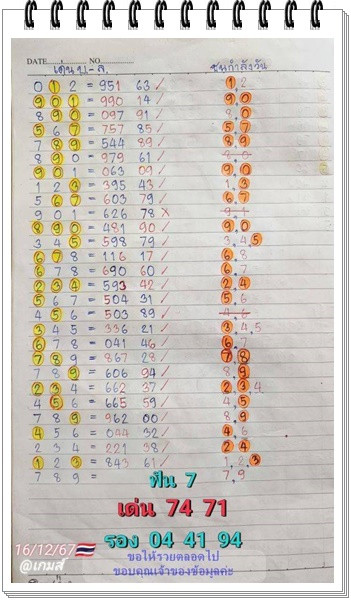 DATE NO.
เด่น บ - ล. ชนกำลังวัน
0 1 2 = 951 63 / 1,2
9 0 1 = 990 14 / 9,0
8 9 0 = 097 91 / 8,0
5 6 7 = 757 85 / 5,7
7 8 9 = 544 89 / 8,9
8 9 0 = 979 61 /
9 0 1 = 063 09 / 9,0
1 2 3 = 395 43 / 1,3
5 6 7 = 603 79 / 6,7
9 0 1 = 626 78 × 9 1
8 9 0 = 481 90 / 9,0
3 4 5 = 598 79 / 3,4,5
6 7 8 = 116 17 / 6,8
6 7 8 = 690 60 / 6,7
2 3 4 = 593 42 / 2,4
5 6 7 = 504 31 / 5,6
4 5 6 = 503 89 / 4,6
3 4 5 = 336 21 / 3,4,5
6 7 8 = 041 46 / 6,7
7 8 9 = 867 28 / 7,8
7 8 9 = 606 94 / 8,9
2 3 4 = 662 37 / 2,3 4
4 5 6 = 665 59 / 4,5
7 8 9 = 962 00 / 8,9
4 5 6 = 044 32 / 4,6
2 3 4 = 221 38 / 2,4
1 2 3 = 843 61 / 1,2,3
7 8 9 = 7,9
ฟัน 7
เด่น 74 71
รอง 04 41 94
16/12/67
@เกมส์
ขอให้รวยตลอดไป
ขอบคุณเจ้าของข้อมูลค่ะ